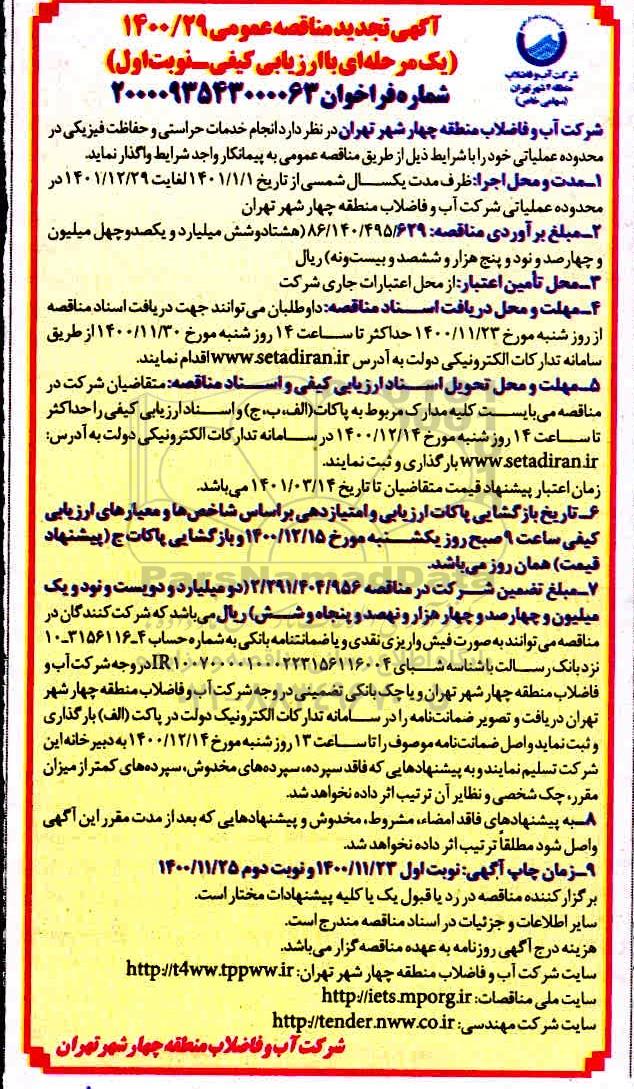 آگهی تجدید مناقصه عمومی ۱۴۰۰/۲۹
(یک مرحله‌ای با ارزیابی کیفی ـ نوبت اول)
شماره فراخوان ۲۰۰۰۰۹۳۵۴۳۰۰۰۰۶۳
شرکت آب و فاضلاب
منطقه ۴ شهر تهران
(سهامی خاص)
شرکت آب و فاضلاب منطقه چهار شهر تهران در نظر دارد انجام خدمات حراستی و حفاظت فیزیکی در
محدوده عملیاتی خود را با شرایط ذیل از طریق مناقصه عمومی به پیمانکار واجد شرایط واگذار نماید.
۱ـ مدت و محل اجرا: ظرف مدت یکسال شمسی از تاریخ ۱۴۰۱/۱/۱ لغایت ۱۴۰۱/۱۲/۲۹ در
محدوده عملیاتی شرکت آب و فاضلاب منطقه چهار شهر تهران
۲ـ مبلغ برآوردی مناقصه: ۸۶/۱۴۰/۴۹۵/۶۲۹ (هشتادوشش میلیارد و یکصدوچهل میلیون
و چهارصد و نود و پنج هزار و ششصد و بیست‌ونه) ریال
۳ـ محل تأمین اعتبار: از محل اعتبارات جاری شرکت
۴ـ مهلت و محل دریافت اسناد مناقصه: داوطلبان می‌توانند جهت دریافت اسناد مناقصه
از روز شنبه مورخ ۱۴۰۰/۱۱/۲۳ حداکثر تا ساعت ۱۴ روز شنبه مورخ ۱۴۰۰/۱۱/۳۰ از طریق
سامانه تدارکات الکترونیکی دولت به آدرس www.setadiran.ir اقدام نمایند.
۵ـ مهلت و محل تحویل اسناد ارزیابی کیفی و اسناد مناقصه: متقاضیان شرکت در
مناقصه می‌بایست کلیه مدارک مربوط به پاکات (الف، ب، ج) و اسناد ارزیابی کیفی را حداکثر
تا ساعت ۱۴ روز شنبه مورخ ۱۴۰۰/۱۲/۱۴ در سامانه تدارکات الکترونیکی دولت به آدرس:
www.setadiran.ir بارگذاری و ثبت نمایند.
زمان اعتبار پیشنهاد قیمت متقاضیان تا تاریخ ۱۴۰۱/۰۳/۱۴ می‌باشد.
۶ـ تاریخ بازگشایی پاکات ارزیابی و امتیازدهی براساس شاخص‌ها و معیارهای ارزیابی
کیفی ساعت ۹ صبح روز یکشنبه مورخ ۱۴۰۰/۱۲/۱۵ و بازگشایی پاکات ج (پیشنهاد
قیمت) همان روز می‌باشد.
۷ـ مبلغ تضمین شرکت در مناقصه ۲/۲۹۱/۴۰۴/۹۵۶ (دو میلیارد و دویست و نود و یک
میلیون و چهارصد و چهار هزار و نهصد و پنجاه و شش) ریال می‌باشد که شرکت‌کنندگان در
مناقصه می‌توانند به صورت فیش واریزی نقدی و یا ضمانتنامه بانکی به شماره حساب ۴ـ۳۱۵۶۱۱۶ـ۱۰
نزد بانک رسالت با شناسه شبای IR۱۰۰۷۰۰۰۰۱۰۰۰۲۲۳۱۵۶۱۱۶۰۰۴ در وجه شرکت آب و
فاضلاب منطقه چهار شهر تهران و یا چک بانکی تضمینی در وجه شرکت آب و فاضلاب منطقه چهار شهر
تهران دریافت و تصویر ضمانت‌نامه را در سامانه تدارکات الکترونیک دولت در پاکت (الف) بارگذاری
و ثبت نماید و اصل ضمانت‌نامه موصوف را تا ساعت ۱۳ روز شنبه مورخ ۱۴۰۰/۱۲/۱۴ به دبیرخانه این
شرکت تسلیم نمایند و به پیشنهادهایی که فاقد سپرده، سپرده‌های مخدوش، سپرده‌های کمتر از میزان
مقرر، چک شخصی و نظایر آن ترتیب اثر داده نخواهد شد.
۸ـ به پیشنهادهای فاقد امضاء، مشروط، مخدوش و پیشنهادهایی که بعد از مدت مقرر این آگهی
واصل شود مطلقاً ترتیب اثر داده نخواهد شد.
۹ـ زمان چاپ آگهی: نوبت اول ۱۴۰۰/۱۱/۲۳ و نوبت دوم ۱۴۰۰/۱۱/۲۵
برگزارکننده مناقصه در رد یا قبول یک یا کلیه پیشنهادات مختار است.
سایر اطلاعات و جزئیات در اسناد مناقصه مندرج است.
هزینه درج آگهی روزنامه به عهده مناقصه‌گزار می‌باشد.
سایت شرکت آب و فاضلاب منطقه چهار شهر تهران: http://t4ww.tppww.ir
سایت ملی مناقصات: http://iets.mporg.ir
سایت شرکت مهندسی: http://tender.nww.co.ir
شرکت آب و فاضلاب منطقه چهار شهر تهران
ParsNamadData